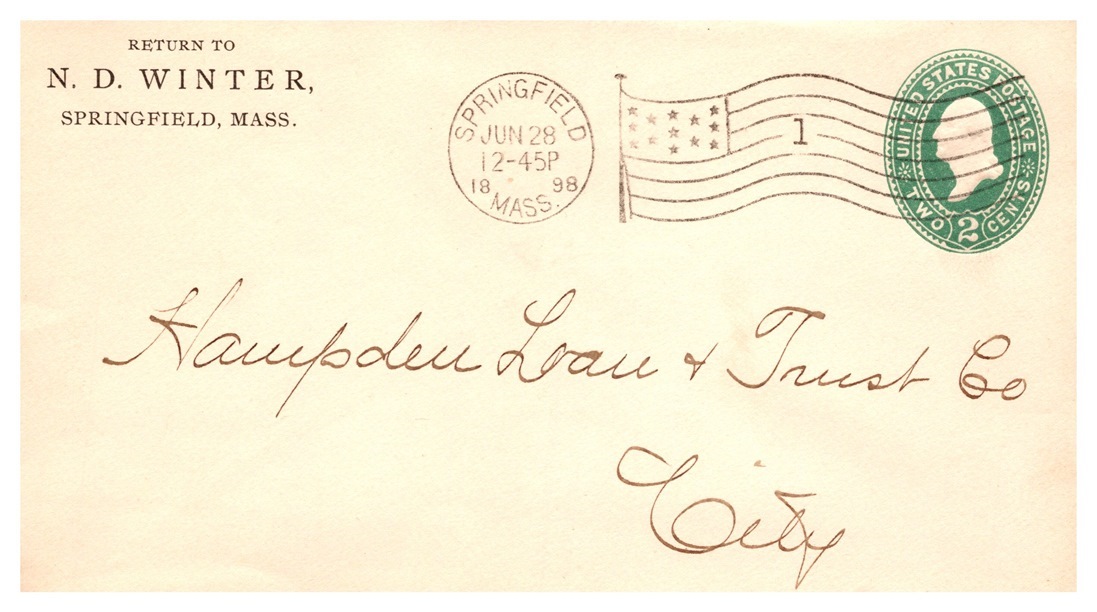 RETURN TO
N. D. WINTER,
SPRINGFIELD, MASS.
SPRINGFIELD
JUN 28
12-45P
18 98
MASS.
1
UNITED STATES POSTAGE
TWO 2 CENTS
Hampden Loan & Trust Co
City